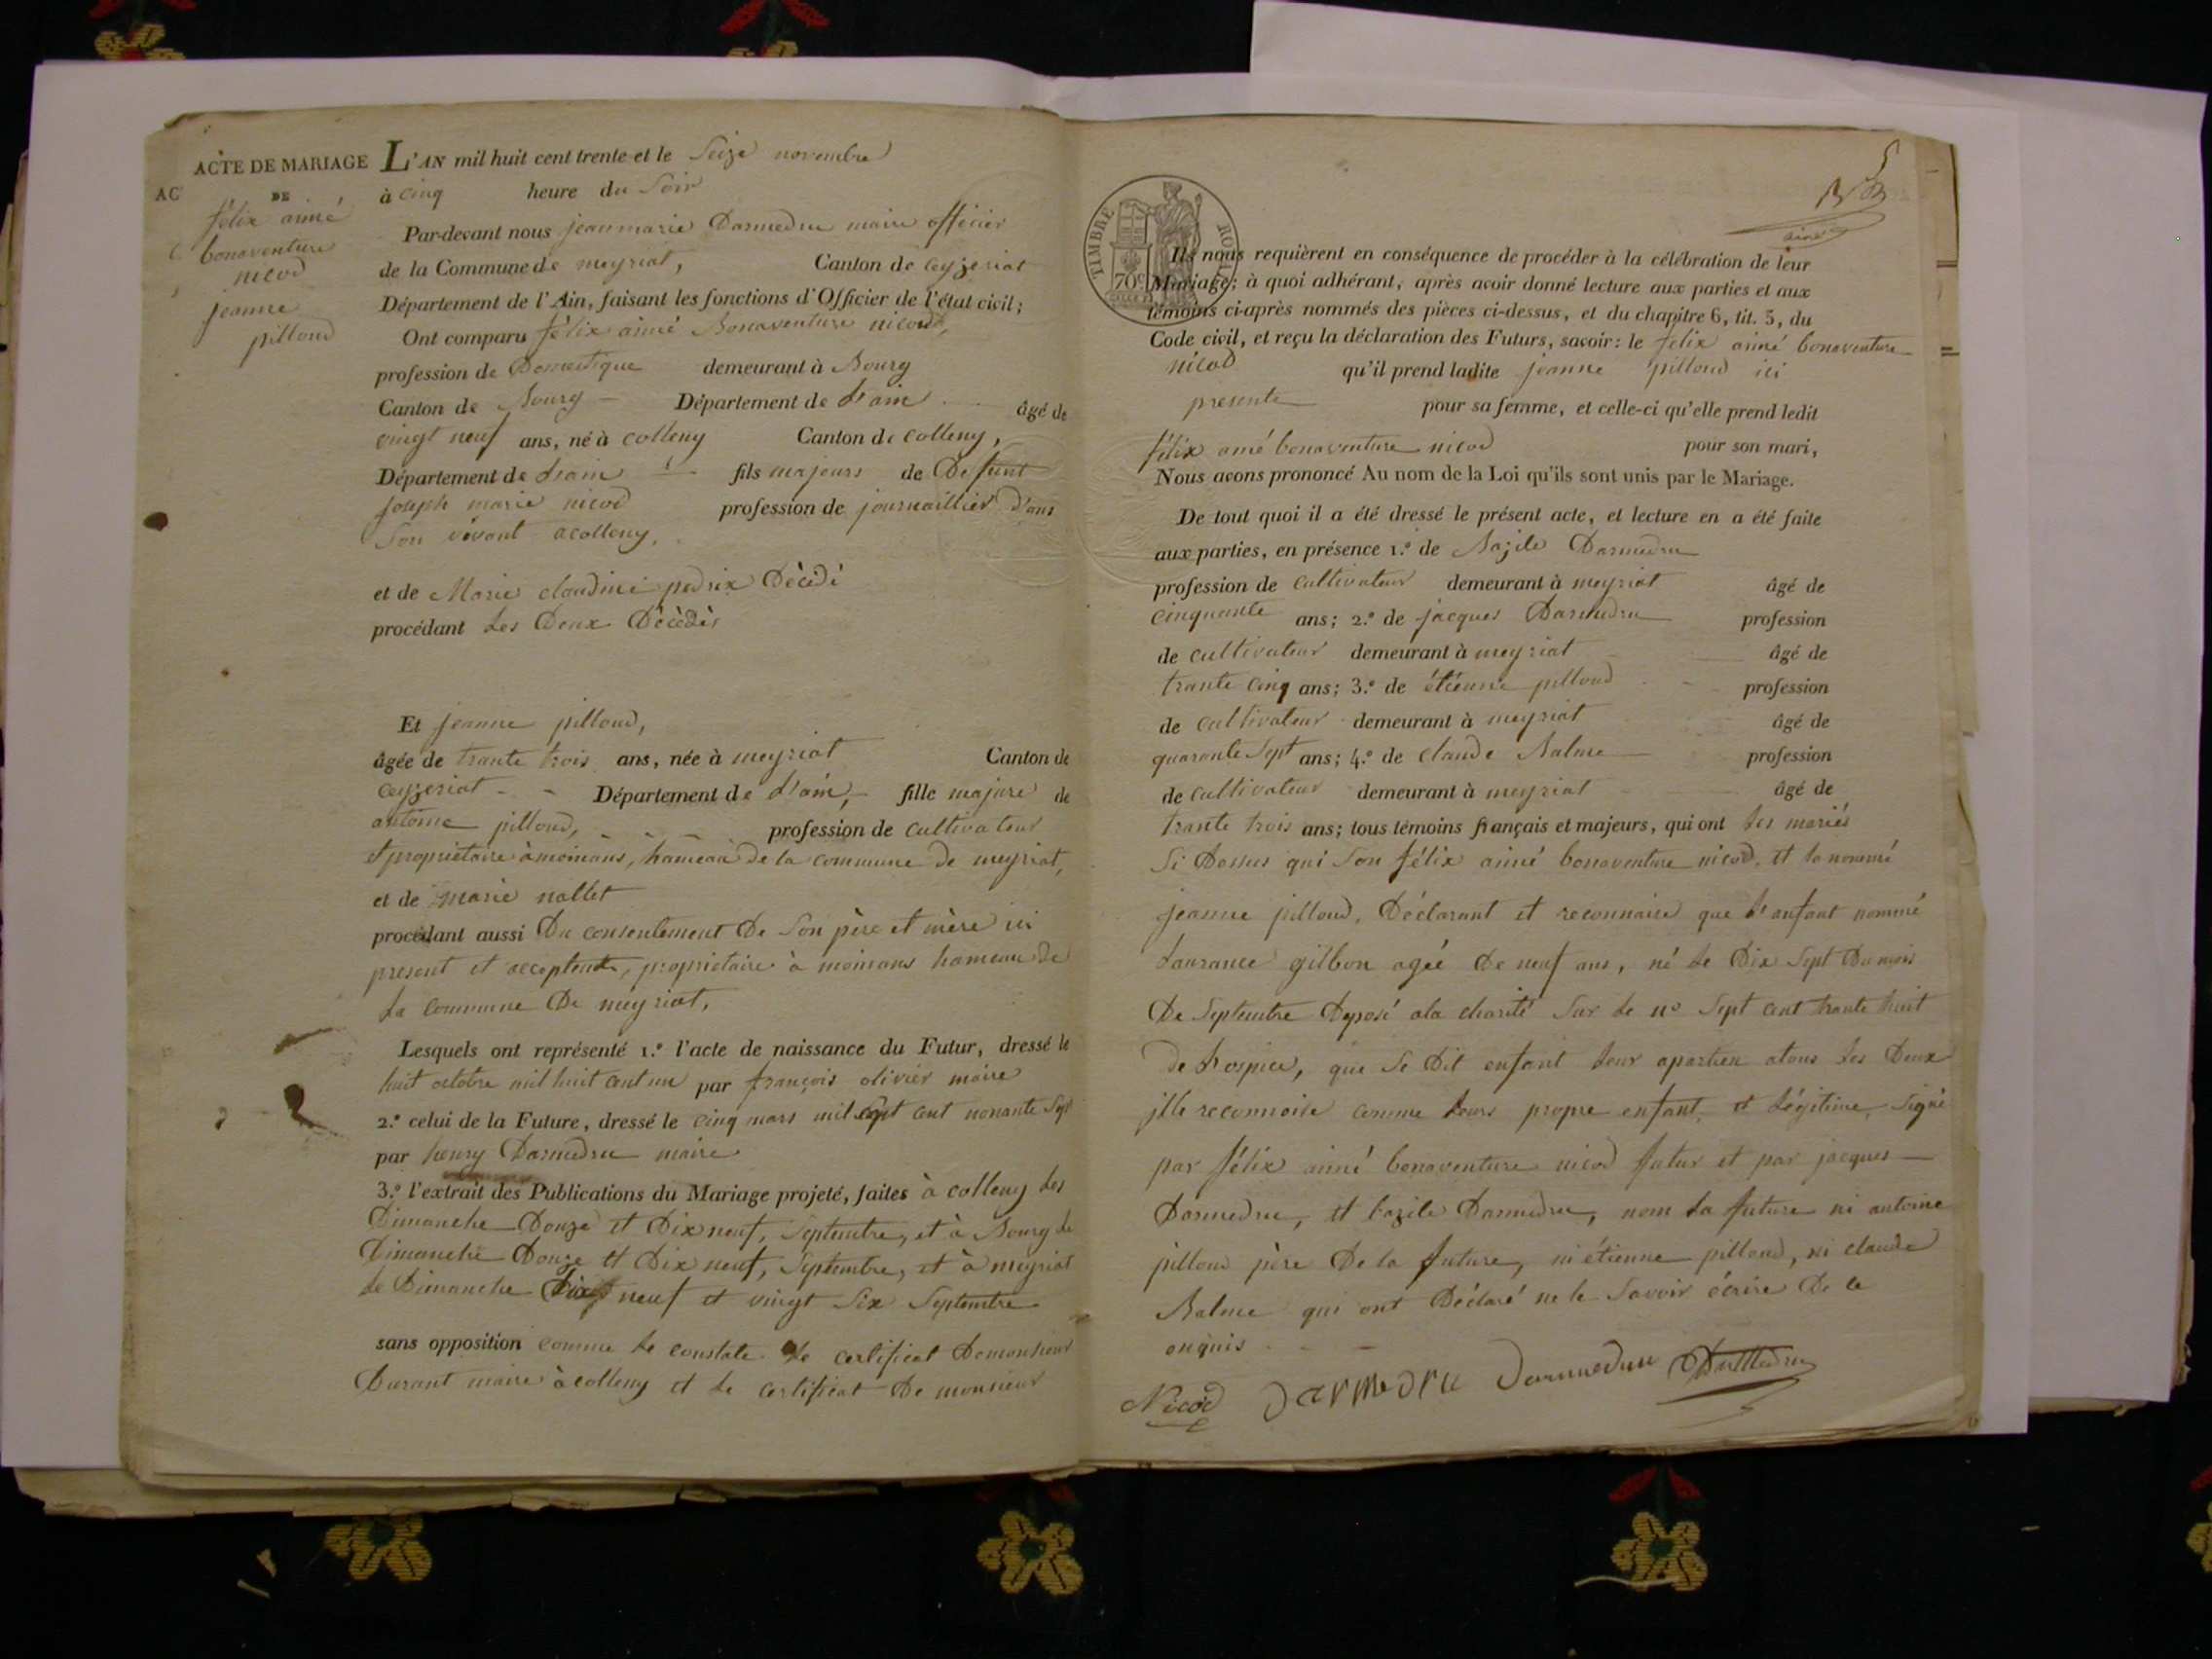 ACTE DE MARIAGE
AC
DE
félix aimé
bonaventure
nicod
jeanne
pilloud
L'AN mil huit cent trente et le Seize novembre
à cinq heure du Soir
Par-devant nous jean marie Darmedru maire officier
de la Commune de meyriat, Canton de ceyzeriat
Département de l'Ain, faisant les fonctions d'Officier de l'état civil;
Ont comparu félix aimé Bonaventure nicod,
profession de Domestique demeurant à Bourg
Canton de Bourg Département de L'ain âgé de
vingt neuf ans, né à colleny Canton de colleny,
Département de L'ain fils majeurs de Defunt
joseph marie nicod profession de journaillier D'ans
Son vivant acolleny.
et de Marie claudine pedrix Dècèdè
procédant Les Deux Dècèdès
Et jeanne pilloud,
âgée de trante trois ans, née à meyriat Canton de
ceyzeriat Département de L'ain, fille majure de
antoine pilloud, profession de cultivateur
et propriètaire à moinans, hameau de la commune de meyriat,
et de marie nallet
procédant aussi Du consentement De Son père et mère ici
present et acceptents, propriètaire à moinans hameau de
La commune De meyriat,
Lesquels ont représenté 1.º l'acte de naissance du Futur, dressé le
huit octobre mil huit cent un par françois olivier maire
2.º celui de la Future, dressé le cinq mars mil sept cent nonante Sept
par henry Darmedru maire
3.º l'extrait des Publications du Mariage projeté, faites à colleny Les
Dimanche Douze et Dix neuf, Septembre, et à Bourg Le
Dimanche Douze et Dix neuf, Septembre, et à meyriat
Le Dimanche Dix neuf et vingt Six Septembre
sans opposition comme Le constate Le certificat Demonsieur
Durant maire à colleny et Le certificat De monsieur
TIMBRE ROYAL
70c
Ils nous requièrent en conséquence de procéder à la célébration de leur
Mariage; à quoi adhérant, après avoir donné lecture aux parties et aux
témoins ci-après nommés des pièces ci-dessus, et du chapitre 6, tit. 5, du
Code civil, et reçu la déclaration des Futurs, savoir: le félix aimé bonaventure
nicod qu'il prend ladite jeanne pilloud ici
presente pour sa femme, et celle-ci qu'elle prend ledit
félix aimé bonaventure nicod pour son mari,
Nous avons prononcé Au nom de la Loi qu'ils sont unis par le Mariage.
De tout quoi il a été dressé le présent acte, et lecture en a été faite
aux parties, en présence 1.º de Bazile Darmedru
profession de cultivateur demeurant à meyriat âgé de
cinquante ans; 2.º de jacques Darmedru profession
de cultivateur demeurant à meyriat âgé de
trante cinq ans; 3.º de étienne pilloud profession
de cultivateur demeurant à meyriat âgé de
quarante Sept ans; 4.º de claude Balme profession
de cultivateur demeurant à meyriat âgé de
trante trois ans; tous témoins français et majeurs, qui ont Les mariés
Si Dessus qui Son félix aimé bonaventure nicod, et La nommé
jeanne pilloud, Déclarant et reconnaire que L'anfant nommé
Laurance gilbon agéé De neuf ans, né Le Dix Sept Du mois
De Septembre Deposé ala charité Sur Le nº Sept cent trante huit
De L'ospice, que Le Dit enfant Leur apartien atous Les Deux
ille reconnoise comme Leurs propre enfant, et Légitime, Signé
par félix aimé bonaventure nicod futur et par jacques
Darmedru, et bazile Darmedru, nom La future ni antoine
pilloud père De la future, ni étienne pilloud, ni claude
Balme qui ont Déclaré ne le Savoir écrire De ce
enquis
Nicod Darmedru Darmedru Darmedru